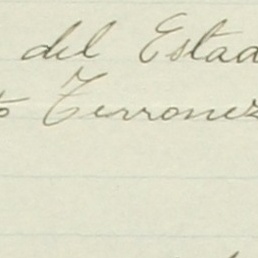 del Estad
o Terronez